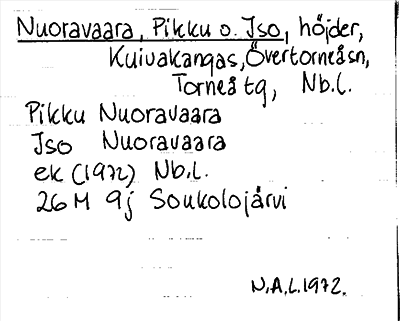 Nuoravaara, Pikku o. Iso, höjder,
Kuivakangas, Övertorneåsn,
Torneå tg, Nb.l.
Pikku Nuoravaara
Iso Nuoravaara
ek (1972) Nb.l.
26 M 9j Soukolojärvi
N.A.L. 1972.